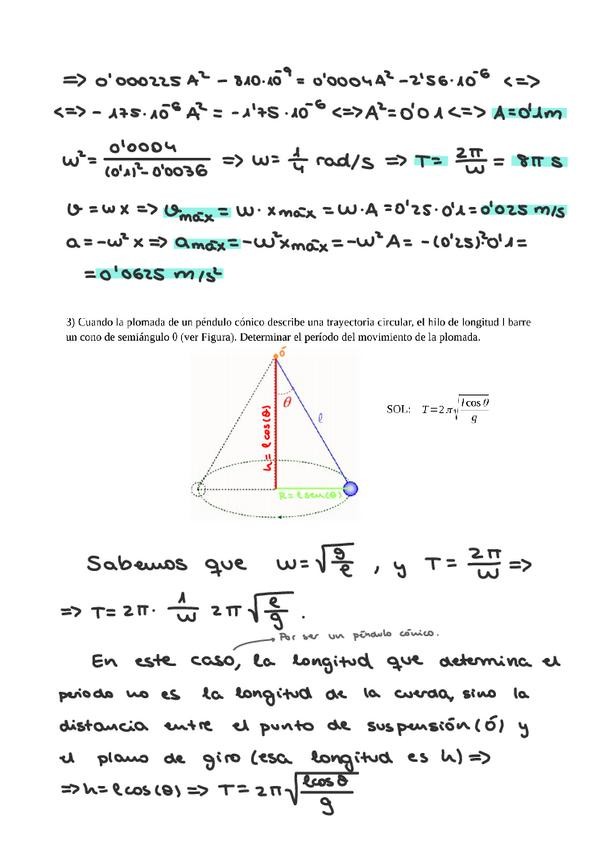 => 0'000225A² - 810·10⁻⁹ = 0'0004A² - 2'56·10⁻⁶ <=>
<=> - 175·10⁻⁶ A² = -1'75·10⁻⁶ <=> A² = 0'01 <=> A = 0'1m
w² = 0'0004 / (0'1)² - 0'0036 => w = 1/4 rad/s => T = 2π/w = 8π s
v = w x => vmáx = w · xmáx = w · A = 0'25 · 0'1 = 0'025 m/s
a = -w² x => amáx = -w² xmáx = -w² A = -(0'25)² · 0'1 =
= 0'0625 m/s²
3) Cuando la plomada de un péndulo cónico describe una trayectoria circular, el hilo de longitud l barre
un cono de semiángulo θ (ver Figura). Determinar el período del movimiento de la plomada.
ó
θ
l
h = l cos(θ)
R = l sen(θ)
SOL: T = 2π √(l cos θ / g)
Sabemos que w = √(g/l) , y T = 2π/w =>
=> T = 2π · 1/w 2π √(l/g) .
Por ser un péndulo cónico.
En este caso, la longitud que determina el
periodo no es la longitud de la cuerda, sino la
distancia entre el punto de suspensión (ó) y
el plano de giro (esa longitud es h) =>
=> h = l cos(θ) => T = 2π √(l cos θ / g)